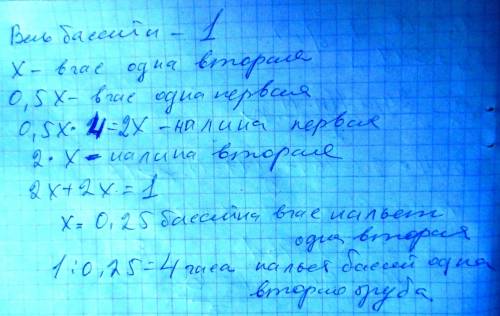 Весь бассейн - 1
х - в час одна вторая
0,5х - в час одна первая
0,5х · 4 = 2х - налила первая
2 · х - налила вторая
2х + 2х = 1
х = 0,25 бассейна в час нальет
одна вторая
1 : 0,25 = 4 часа нальет бассей одна
вторая труба